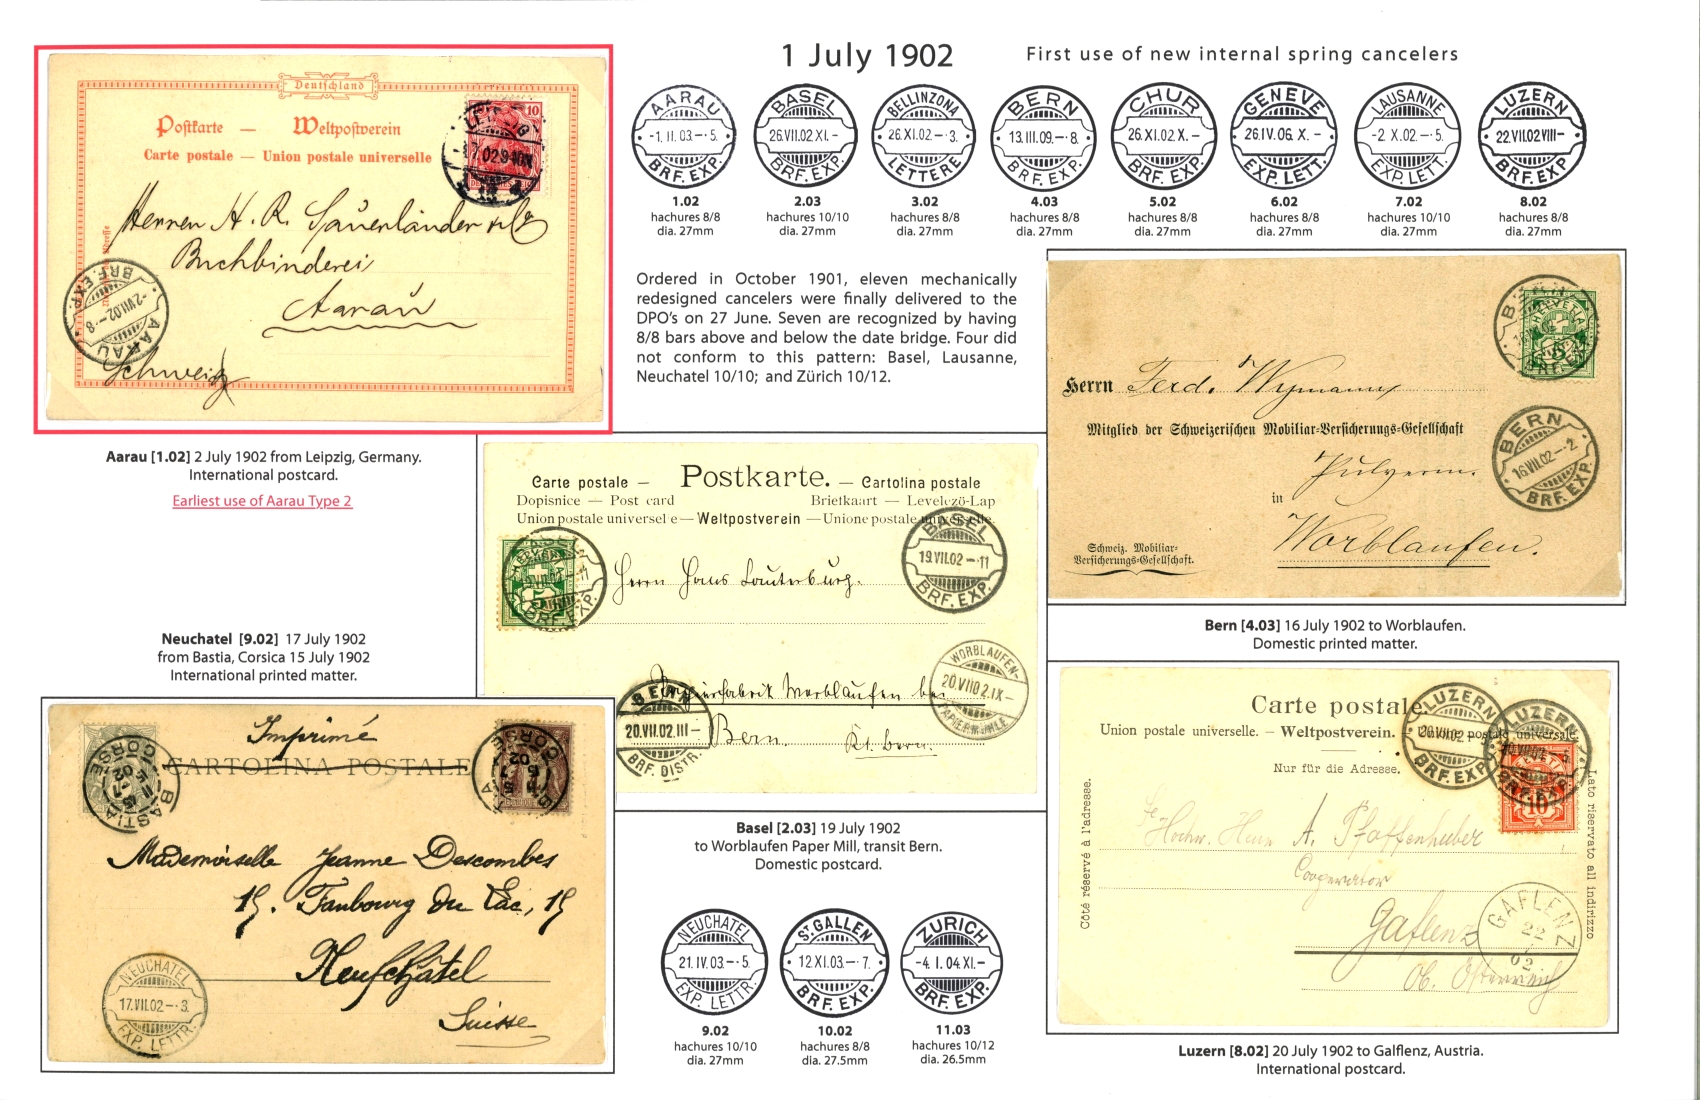 1 July 1902
First use of new internal spring cancelers
AARAU
-1. II. 03.-· 5.
BRF. EXP.
1.02
hachures 8/8
dia. 27mm
BASEL
26.VII.02 XI. -
BRF. EXP.
2.03
hachures 10/10
dia. 27mm
BELLINZONA
26. XI.02. -· 3.
LETTERE
3.02
hachures 8/8
dia. 27mm
BERN
13.III.09.-· 8.
BRF. EXP.
4.03
hachures 8/8
dia. 27mm
CHUR
26.XI.02. X. -
BRF. EXP.
5.02
hachures 8/8
dia. 27mm
GENEVE
26.IV. 06. X. -
EXP. LETT.
6.02
hachures 8/8
dia. 27mm
LAUSANNE
-2 X.02. -· 5.
EXP. LETT.
7.02
hachures 10/10
dia. 27mm
LUZERN
22.VII.02 VIII-
BRF. EXP.
8.02
hachures 8/8
dia. 27mm
Deutschland
Postkarte — Weltpostverein
Carte postale — Union postale universelle
10
7.02.9-10N
Herren H. R. Sauerländer & Co
Buchbinderei
Aarau
Schweiz
AARAU
-2.VII.02.-·8
BRF. EXP.
Aarau [1.02] 2 July 1902 from Leipzig, Germany.
International postcard.
Earliest use of Aarau Type 2
Ordered in October 1901, eleven mechanically
redesigned cancelers were finally delivered to the
DPO's on 27 June. Seven are recognized by having
8/8 bars above and below the date bridge. Four did
not conform to this pattern: Basel, Lausanne,
Neuchatel 10/10; and Zürich 10/12.
Herrn Ferd. Wymann
Mitglied der Schweizerischen Mobiliar-Versicherungs-Gesellschaft
Pulverm.
in
Worblaufen.
Schweiz. Mobiliar-
Versicherungs-Gesellschaft.
HELVETIA
BERN
16.VII.02-·2
BRF. EXP.
Bern [4.03] 16 July 1902 to Worblaufen.
Domestic printed matter.
Carte postale — Postkarte. — Cartolina postale
Dopisnice — Post card Brietkaart — Levelező-Lap
Union postale universelle — Weltpostverein — Unione postale universelle.
BASEL
19.VII.02 -·11
BRF. EXP.
Herrn Hans Lauterburg.
Papierfabrik Worblaufen bei
Bern. Kt. Bern.
BERN
20.VII.02.III-
BRF. DISTR.
WORBLAUFEN-
20.VII02.IX-
PAPIERMÜHLE
Basel [2.03] 19 July 1902
to Worblaufen Paper Mill, transit Bern.
Domestic postcard.
Neuchatel [9.02] 17 July 1902
from Bastia, Corsica 15 July 1902
International printed matter.
Imprimé
CARTOLINA POSTALE
BASTIA
CORSE
Mademoiselle Jeanne Descombes
15. Faubourg du Lac, 15
Neufchâtel
Suisse
NEUCHATEL
17.VII.02-·3.
EXP. LETTR.
NEUCHATEL
21. IV. 03.-· 5.
EXP. LETTR.
9.02
hachures 10/10
dia. 27mm
ST. GALLEN
12 XI.03. -· 7.
BRF. EXP.
10.02
hachures 8/8
dia. 27.5mm
ZÜRICH
-4. I. 04. XI.-
BRF. EXP.
11.03
hachures 10/12
dia. 26.5mm
Carte postale.
Union postale universelle. — Weltpostverein.
Nur für die Adresse.
Côté réservé à l'adresse.
Lato riservato all indirizzo
LUZERN
BRF. EXP.
LUZERN
10
Hochw. Herrn A. Pfaffenhuber
Cooperator
Gaflenz
Ob. Österreich
GAFLENZ
22
7
02
Luzern [8.02] 20 July 1902 to Galflenz, Austria.
International postcard.